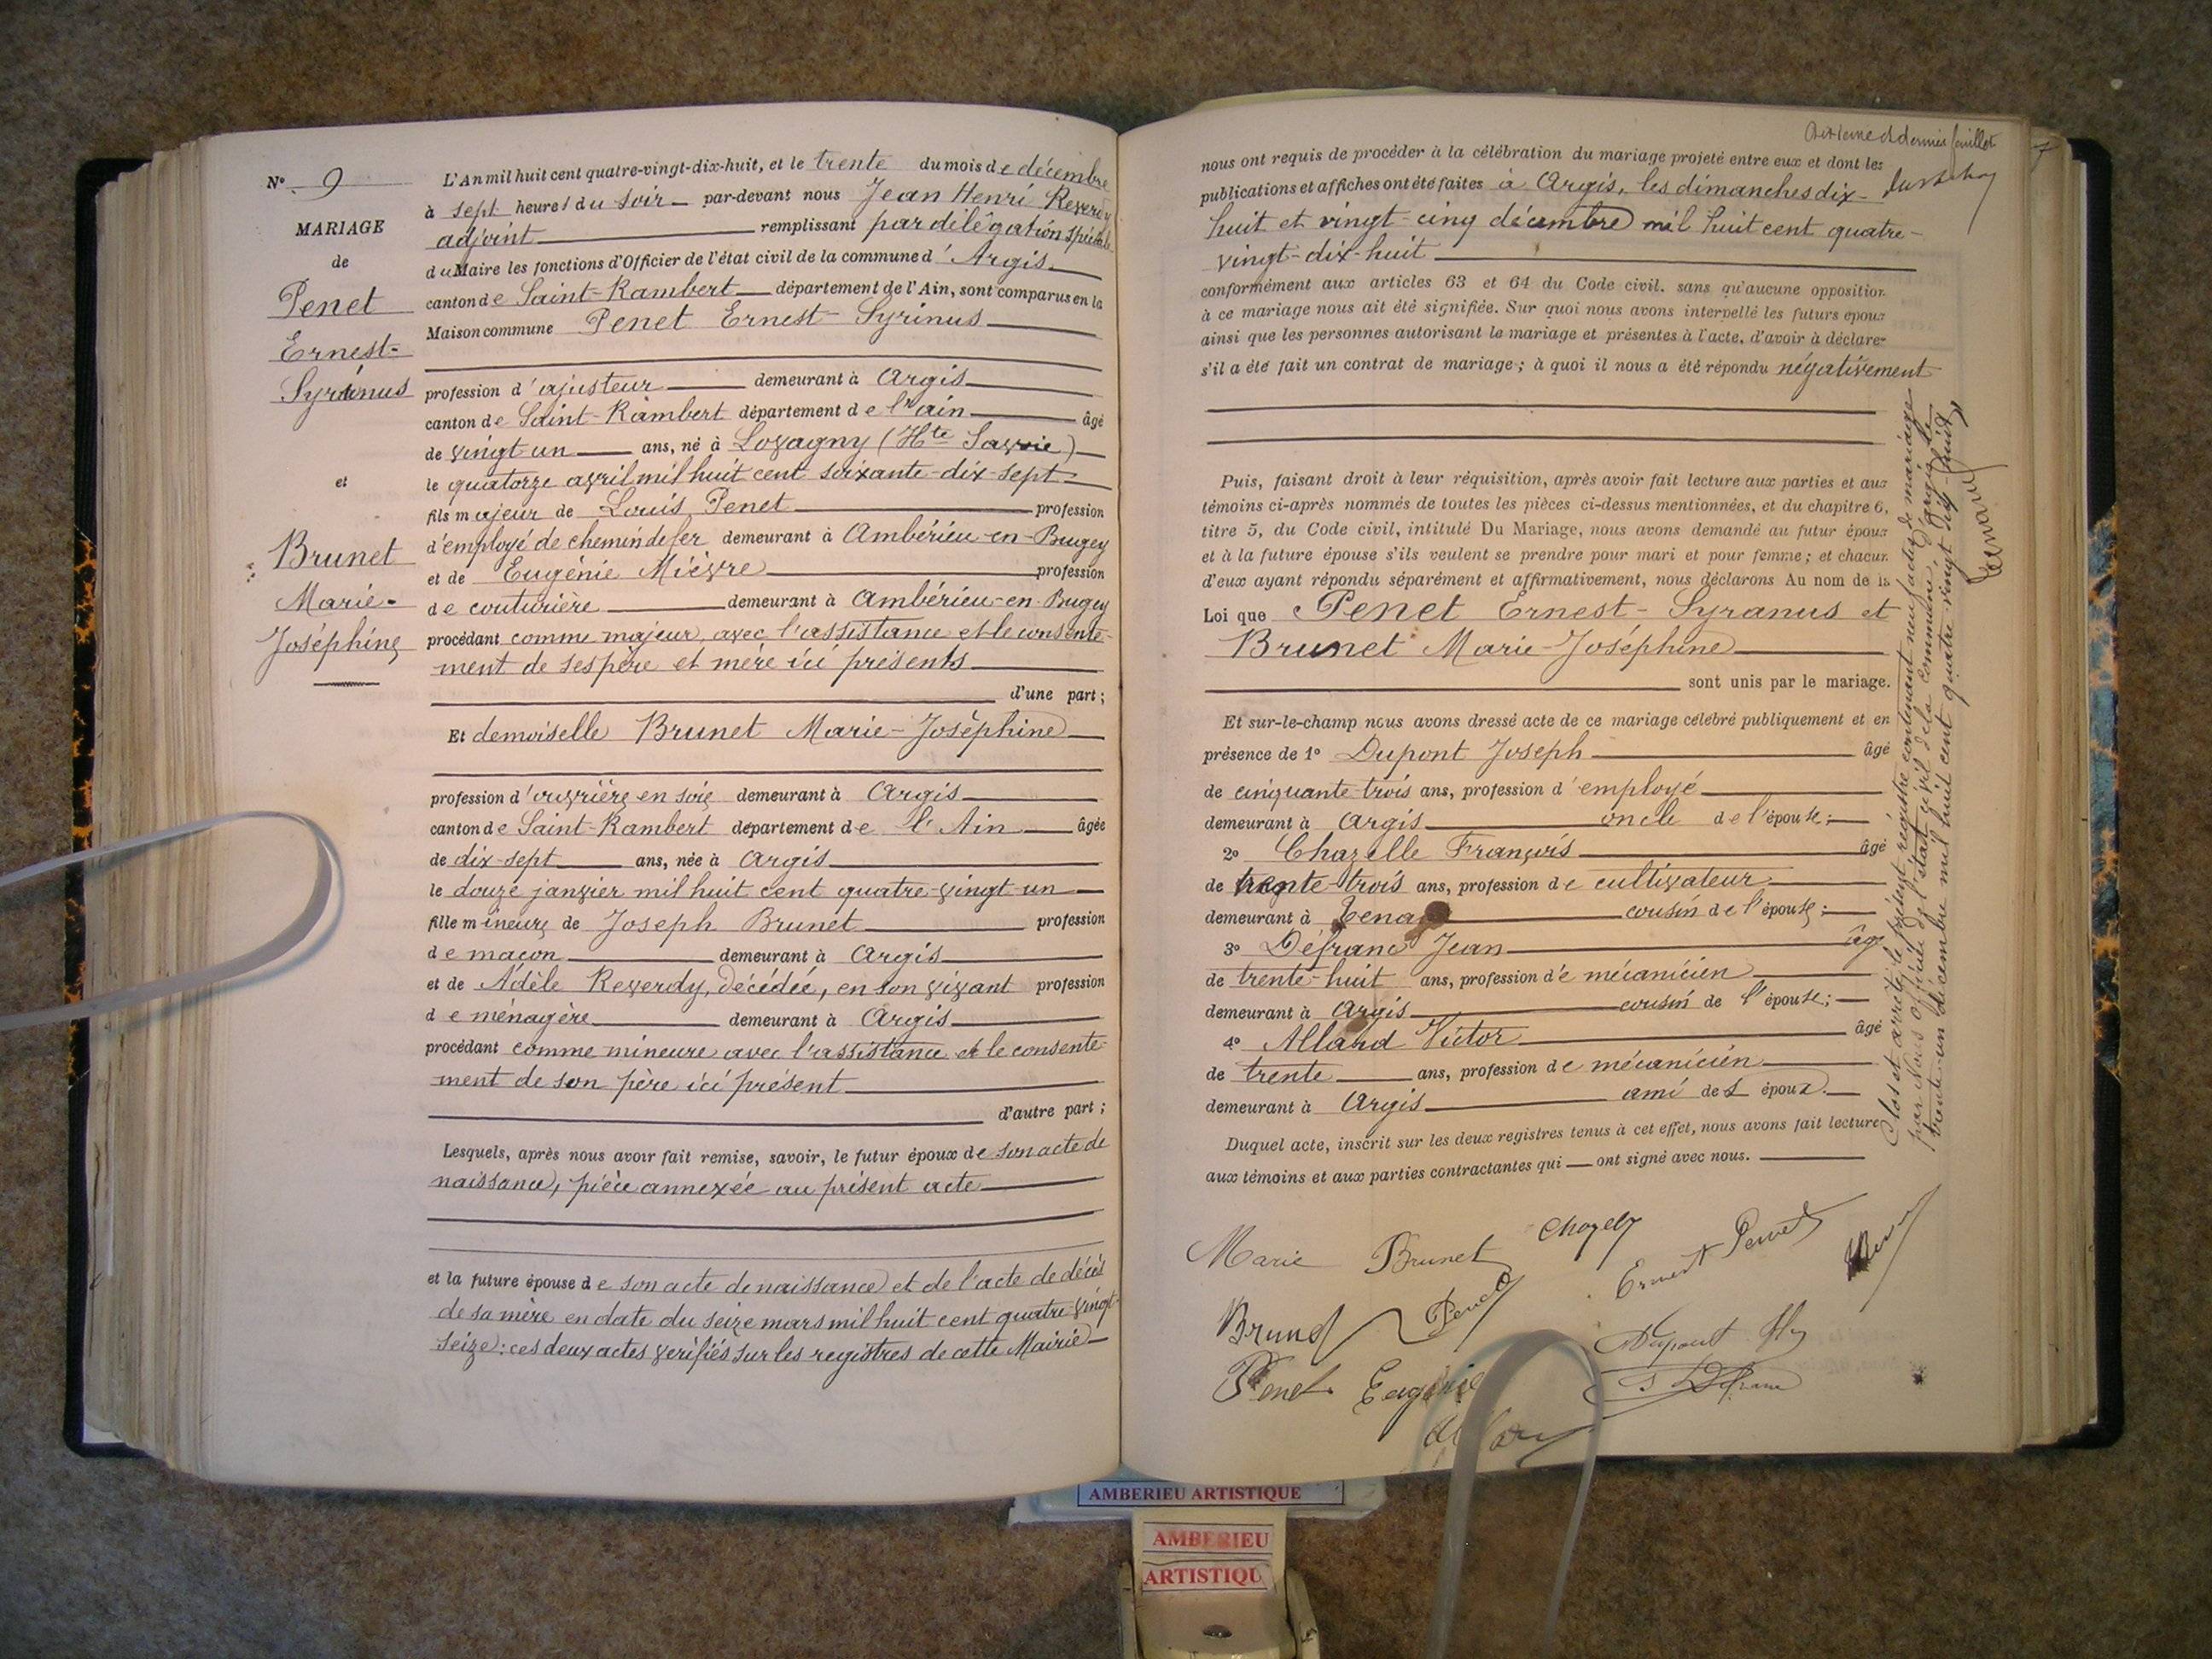 N° 9
MARIAGE
de
Penet
Ernest-
Syrinus
et
Brunet
Marie-
Joséphine
L'An mil huit cent quatre-vingt-dix-huit, et le trente du mois de décembre
à sept heures du soir par-devant nous Jean Henri Reverdy
adjoint remplissant par délégation spéciale
du Maire les fonctions d'Officier de l'état civil de la commune d'Argis
canton de Saint-Rambert département de l'Ain, sont comparus en la
Maison commune Penet Ernest-Syrinus
profession d'ajusteur demeurant à Argis
canton de Saint-Rambert département de l'ain âgé
de vingt un ans, né à Lovagny (Hte Savoie)
le quatorze avril mil huit cent soixante-dix-sept
fils majeur de Louis Penet profession
d'employé de chemin de fer demeurant à Ambérieu-en-Bugey
et de Eugénie Mièvre profession
de couturière demeurant à Ambérieu-en-Bugey
procédant comme majeur, avec l'assistance et le consente-
ment de ses père et mère ici présents
d'une part;
Et demoiselle Brunet Marie-Joséphine
profession d'ouvrière en soie demeurant à Argis
canton de Saint-Rambert département de l'Ain âgée
de dix-sept ans, née à Argis
le douze janvier mil huit cent quatre-vingt-un
fille mineure de Joseph Brunet profession
de maçon demeurant à Argis
et de Adèle Reverdy, décédée, en son vivant profession
de ménagère demeurant à Argis
procédant comme mineure avec l'assistance et le consente-
ment de son père ici présent
d'autre part;
Lesquels, après nous avoir fait remise, savoir, le futur époux de son acte de
naissance, pièce annexée au présent acte
et la future épouse de son acte de naissance et de l'acte de décès
de sa mère en date du seize mars mil huit cent quatre vingt-
seize: ces deux actes vérifiés sur les registres de cette Mairie
et dernier feuillet
nous ont requis de procéder à la célébration du mariage projeté entre eux et dont les
publications et affiches ont été faites à Argis, les dimanches dix-
huit et vingt-cinq décembre mil huit cent quatre-
vingt-dix-huit
conformément aux articles 63 et 64 du Code civil. sans qu'aucune opposition
à ce mariage nous ait été signifiée. Sur quoi nous avons interpellé les futurs époux
ainsi que les personnes autorisant le mariage et présentes à l'acte, d'avoir à déclarer
s'il a été fait un contrat de mariage; à quoi il nous a été répondu négativement
Puis, faisant droit à leur réquisition, après avoir fait lecture aux parties et aux
témoins ci-après nommés de toutes les pièces ci-dessus mentionnées, et du chapitre 6,
titre 5, du Code civil, intitulé Du Mariage, nous avons demandé au futur époux
et à la future épouse s'ils veulent se prendre pour mari et pour femme; et chacun
d'eux ayant répondu séparément et affirmativement, nous déclarons Au nom de la
Loi que Penet Ernest-Syranus et
Brunet Marie-Joséphine
sont unis par le mariage.
Et sur-le-champ nous avons dressé acte de ce mariage célébré publiquement et en
présence de 1° Dupont Joseph âgé
de cinquante-trois ans, profession d'employé
demeurant à Argis oncle de l'épouse;
2° Chazelle François âgé
de trente-trois ans, profession de cultivateur
demeurant à Tenay cousin de l'épouse;
3° Défranc Jean âgé
de trente-huit ans, profession de mécanicien
demeurant à Argis cousin de l'épouse;
4° Alland Victor âgé
de trente ans, profession de mécanicien
demeurant à Argis ami des époux.
Duquel acte, inscrit sur les deux registres tenus à cet effet, nous avons fait lecture
aux témoins et aux parties contractantes qui ont signé avec nous.
Clos et arrêté le présent registre contenant neuf actes de mariage
par Nous officier de l'état civil de la commune d'Argis le
trente-un décembre mil huit cent quatre-vingt dix-huit
Marie Brunet
Ernest Penet
Brunet
Penet
Penet Eugénie
AMBERIEU ARTISTIQUE
AMBERIEU
ARTISTIQU